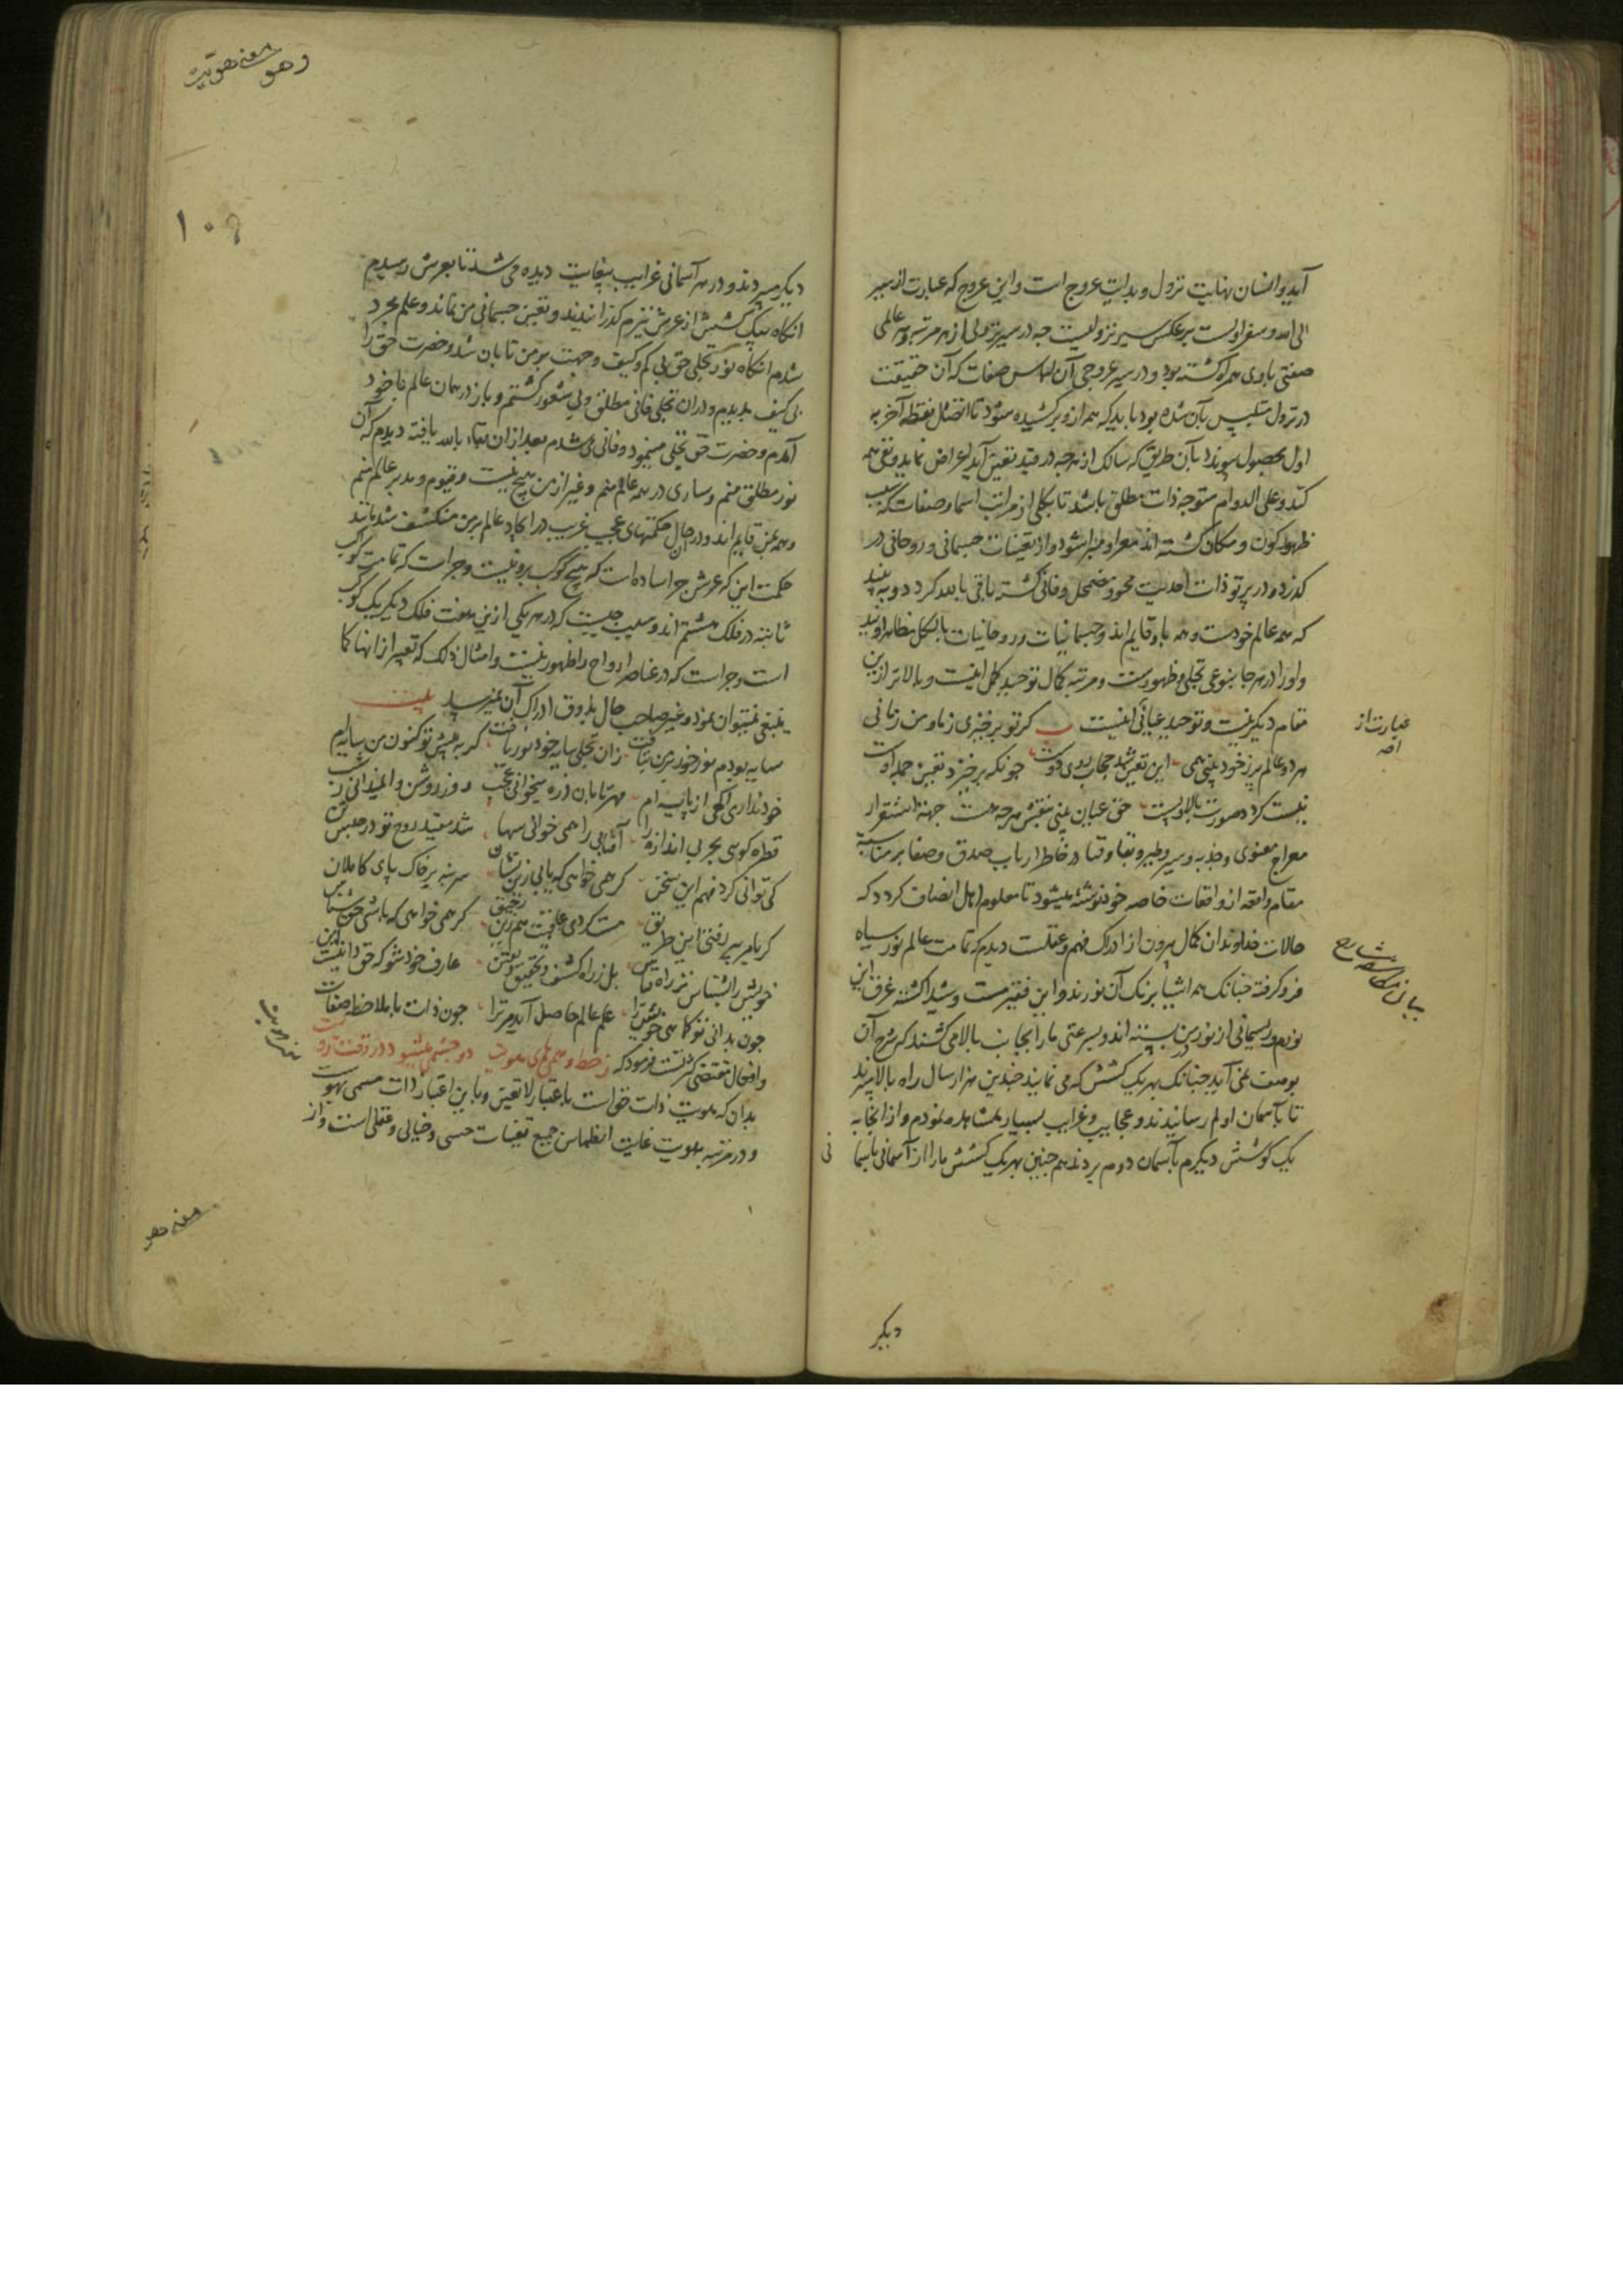 آید و انسان نهایت نزول و بدایت عروج است و این عروج که عبارت از سیر
الی الله و سفر اولست بر عکس سیر نزولیست چه در سیر نزولی از هر مرتبه و هر عالمی
صفتی با وی همراه گشته بود و در سیر عروجی آن لباس صفات که آن حقیقت
در نزول متلبس بآن شده بود باید که همه ازو برکشیده شود تا اتصال نقطه آخر به
اول بحصول پیوندد بآن طریق که سالک از هر چه در قید تعین آید اعراض نماید و نفی همه
کند و علی الدوام متوجه ذات مطلق باشد تا بکلی از مراتب اسما و صفات که سبب
ظهور کون و مکان گشته اند معرا و مبرا شود و از تعینات جسمانی و روحانی در
گذرد و در پرتو ذات احدیت محو و مضمحل و فانی گشته باقی بالله گردد و به بیند
که همه عالم خودست و همه باو قایم اند و جسمانیات و روحانیات بالکل مظاهر اویند
و او را در هر جا بنوعی تجلی و ظهورست و مرتبه کمال توحید کمل اینست و بالاتر ازین
مقام دیگر نیست و توحید عیانی اینست گر تو برخیزی ز ما و من زمانی
هر دو عالم پر ز خود بینی همی این تعین شد حجاب روی دوست چونکه برخیزد تعین جمله اوست
نیست گردد صورت بالا و پست حق عیان بینی بنقش هر چه هست جهة استقرار
معراج معنوی و جذبه و سیر و طیر و بقا و فنا در خاطر ارباب صدق و صفا بر مناسبه
مقام واقعه از واقعات خاصه خود نوشته میشود تا معلوم اهل انصاف گردد که
حالات خداوندان کمال بیرون از ادراک فهم و عقلست دیدم که تمامت عالم نور سیاه
فرو گرفته چنانکه همه اشیا برنگ آن نورند و این فقیر مست و شیدا گشته غرق این
نورم و ریسمانی از نور در من بسته اند و بسرعتی مارا بجانب بالا می کشند که شرح آن
بوصف نمی آید چنانکه بهر یک کشش که می نمایند چندین هزار سال راه بالا میبرند
تا بآسمان اولم رسانیدند و عجایب و غرایب بسیار مشاهده نمودم و از آنجا به
یک کوشش دیگرم بآسمان دوم بردند همچنین بهر یک کشش مارا از آسمانی بآسما
نی
دیگر
عبارت از
بیان شارح
وهو معنی هویت
۱۰۹
دیگر میبردند و در هر آسمانی غرایب بیغایت دیده می شد تا بعرش رسیدم
انگاه بیک کشش از عرش نیزم گذرانیدند و تعین جسمانی من نماند و علم مجرد
شدم انگاه نور تجلی حق بی کم و کیف و جهت بر من تابان شد و حضرت حق را
بی کیف بدیدم و در آن تجلی فانی مطلق و بی شعور گشتم و باز در همان عالم با خود
آمدم و حضرت حق تجلی مینمود و فانی می شدم بعد از آن بقاء بالله یافته دیدم که آن
نور مطلق منم و ساری در همه عالم منم و غیر از من هیچ نیست و قیوم و مدبر عالم منم
و همه بمن قایم اند و در آن حال حکمتهای عجیب غریب در ایجاد عالم بر من منکشف شد مانند
حکمت این که عرش چرا ساده است که هیچ کوکب برو نیست و چرا است که تمامت کواکب
ثابته در فلک هشتم اند و سبب چیست که در هر یکی ازین هفت فلک دیگر یک کوکب
است و چرا است که در عناصر ارواح را ظهور نیست و امثال ذلک که تعبیر از آنها کما
ینبغی نمیتوان نمود و غیر صاحب حال بذوق ادراک آن نمیرسد بیت
سایه بودم نور خود بر من بتافت زان تجلی سایه خود نور یافت گر به پیش تو کنون من سایه ام
خود نداری آگهی از پایه ام مهر تابان ذره میخوانی عجب روز روشن را نمیدانی ز شب
قطره گویی بحر بی اندازه را آفتابی را همی خوانی سها شد مقید روح تو در حبس تن
کی توانی کرد فهم این سخن گر همی خواهی که یابی زین نشان سر بنه بر خاک پای کاملان
گر نامیر سر رفتی این طریق مست گردی عاقبت هم زین رحیق گر همی خواهی که باشی حق شناس
خویش را بشناس نز راه قیاس بل ز راه کشف و تحقیق و یقین عارف خود شو که حق دانیست این
چون بدانی تو کماهی خویش را علم عالم حاصل آید مر ترا چون ذات با ملاحظه صفات
و افعال مقتضی کثرتست فرمود که ز خط وهمی های هویت دو چشمه میشود در وقت رویت
بدان که هویت ذات حق است باعتبار لا تعین و باین اعتبار ذات مسمی بهوست
و در مرتبه هویت غایت انطماس جمیع تعینات حسی و خیالی و عقلی است و از
معنی هویت
معنی هو